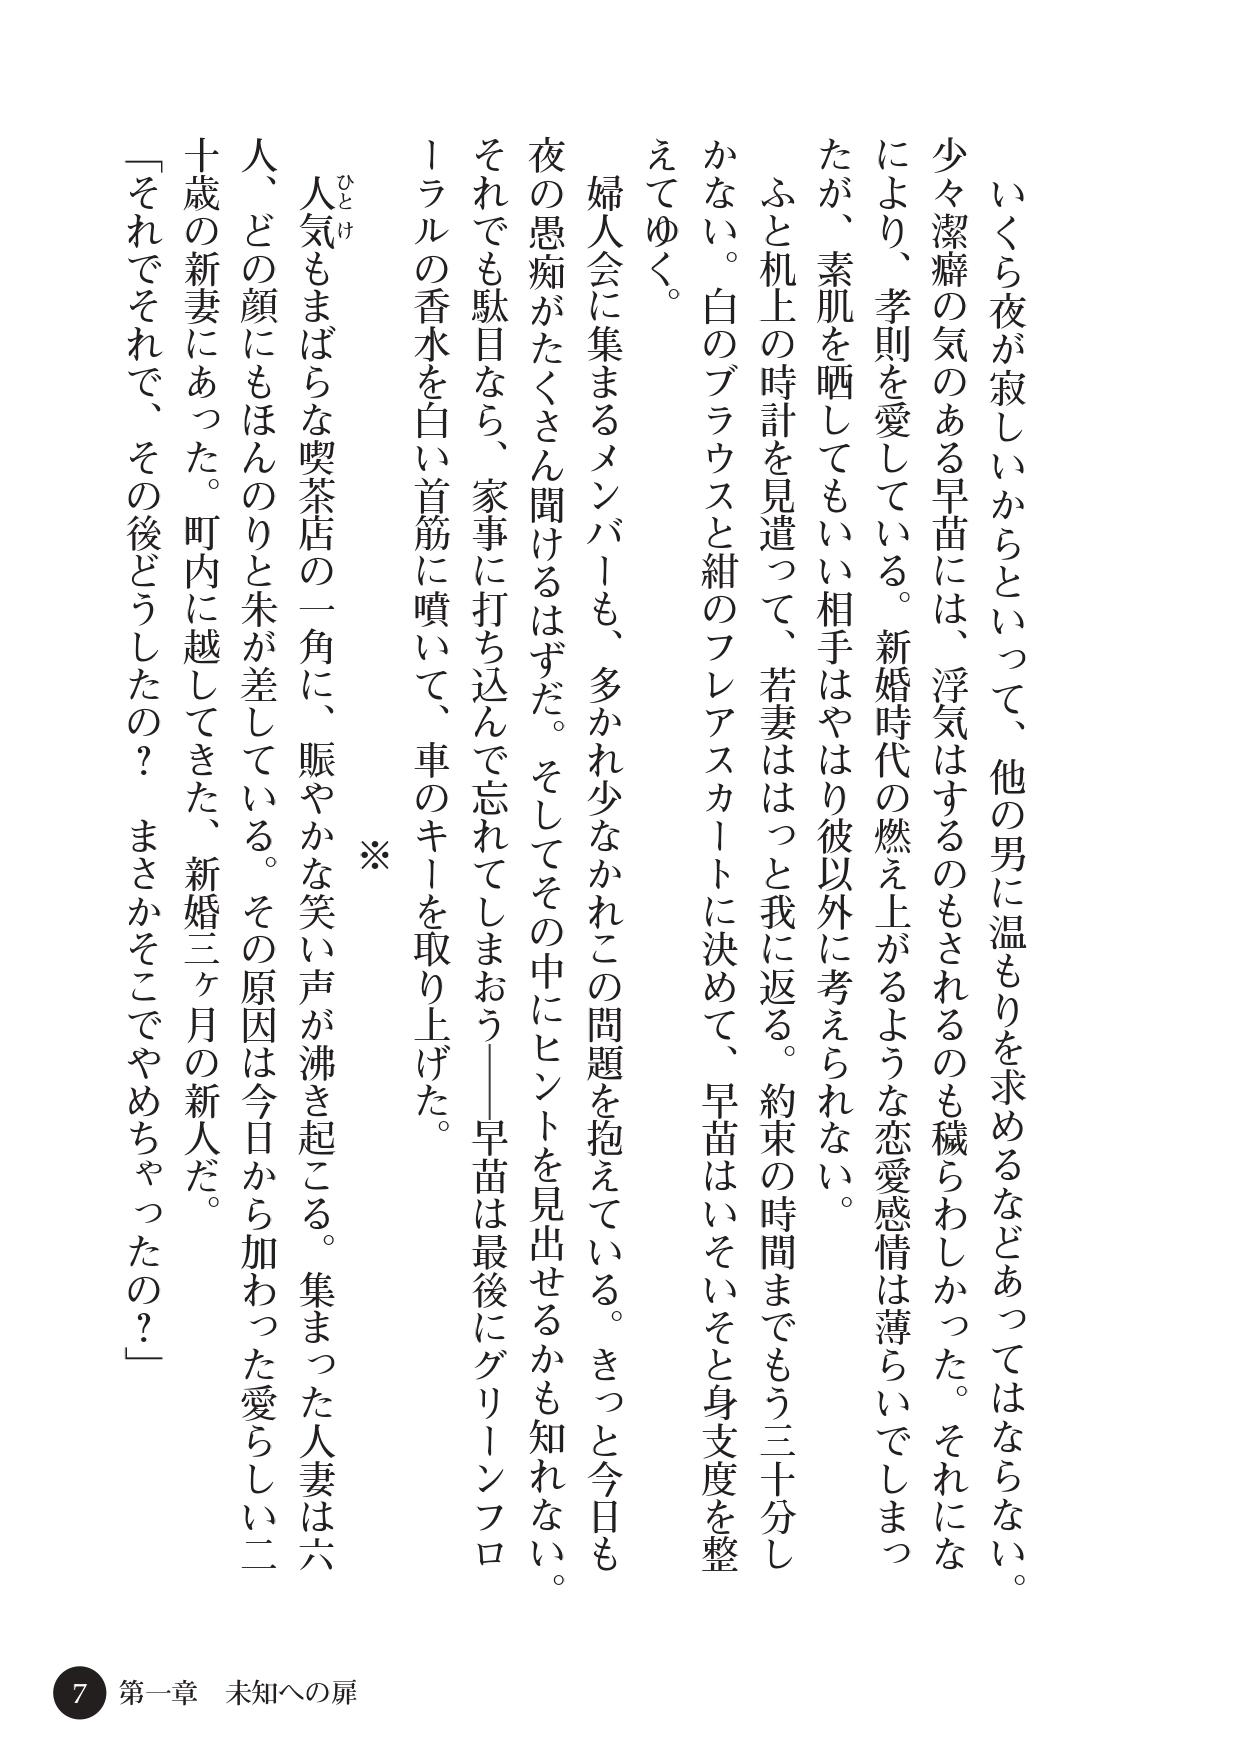 いくら夜が寂しいからといって、他の男に温もりを求めるなどあってはならない。
少々潔癖の気のある早苗には、浮気はするのもされるのも穢らわしかった。それにな
により、孝則を愛している。新婚時代の燃え上がるような恋愛感情は薄らいでしまっ
たが、素肌を晒してもいい相手はやはり彼以外に考えられない。
ふと机上の時計を見遣って、若妻ははっと我に返る。約束の時間までもう三十分し
かない。白のブラウスと紺のフレアスカートに決めて、早苗はいそいそと身支度を整
えてゆく。
婦人会に集まるメンバーも、多かれ少なかれこの問題を抱えている。きっと今日も
夜の愚痴がたくさん聞けるはずだ。そしてその中にヒントを見出せるかも知れない。
それでも駄目なら、家事に打ち込んで忘れてしまおう――早苗は最後にグリーンフロ
ーラルの香水を白い首筋に噴いて、車のキーを取り上げた。
※
人気もまばらな喫茶店の一角に、賑やかな笑い声が沸き起こる。集まった人妻は六
ひとけ
人、どの顔にもほんのりと朱が差している。その原因は今日から加わった愛らしい二
十歳の新妻にあった。町内に越してきた、新婚三ヶ月の新人だ。
「それでそれで、その後どうしたの？　まさかそこでやめちゃったの？」
7 第一章　未知への扉